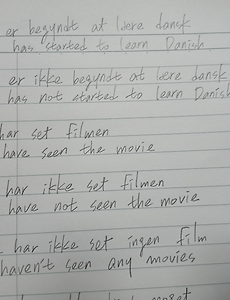 er begyndt at lære dansk
has started to learn Danish
er ikke begyndt at lære dansk
has not started to learn Danish
har set filmen
have seen the movie
har ikke set filmen
have not seen the movie
har ikke set ingen film
haven't seen any movies